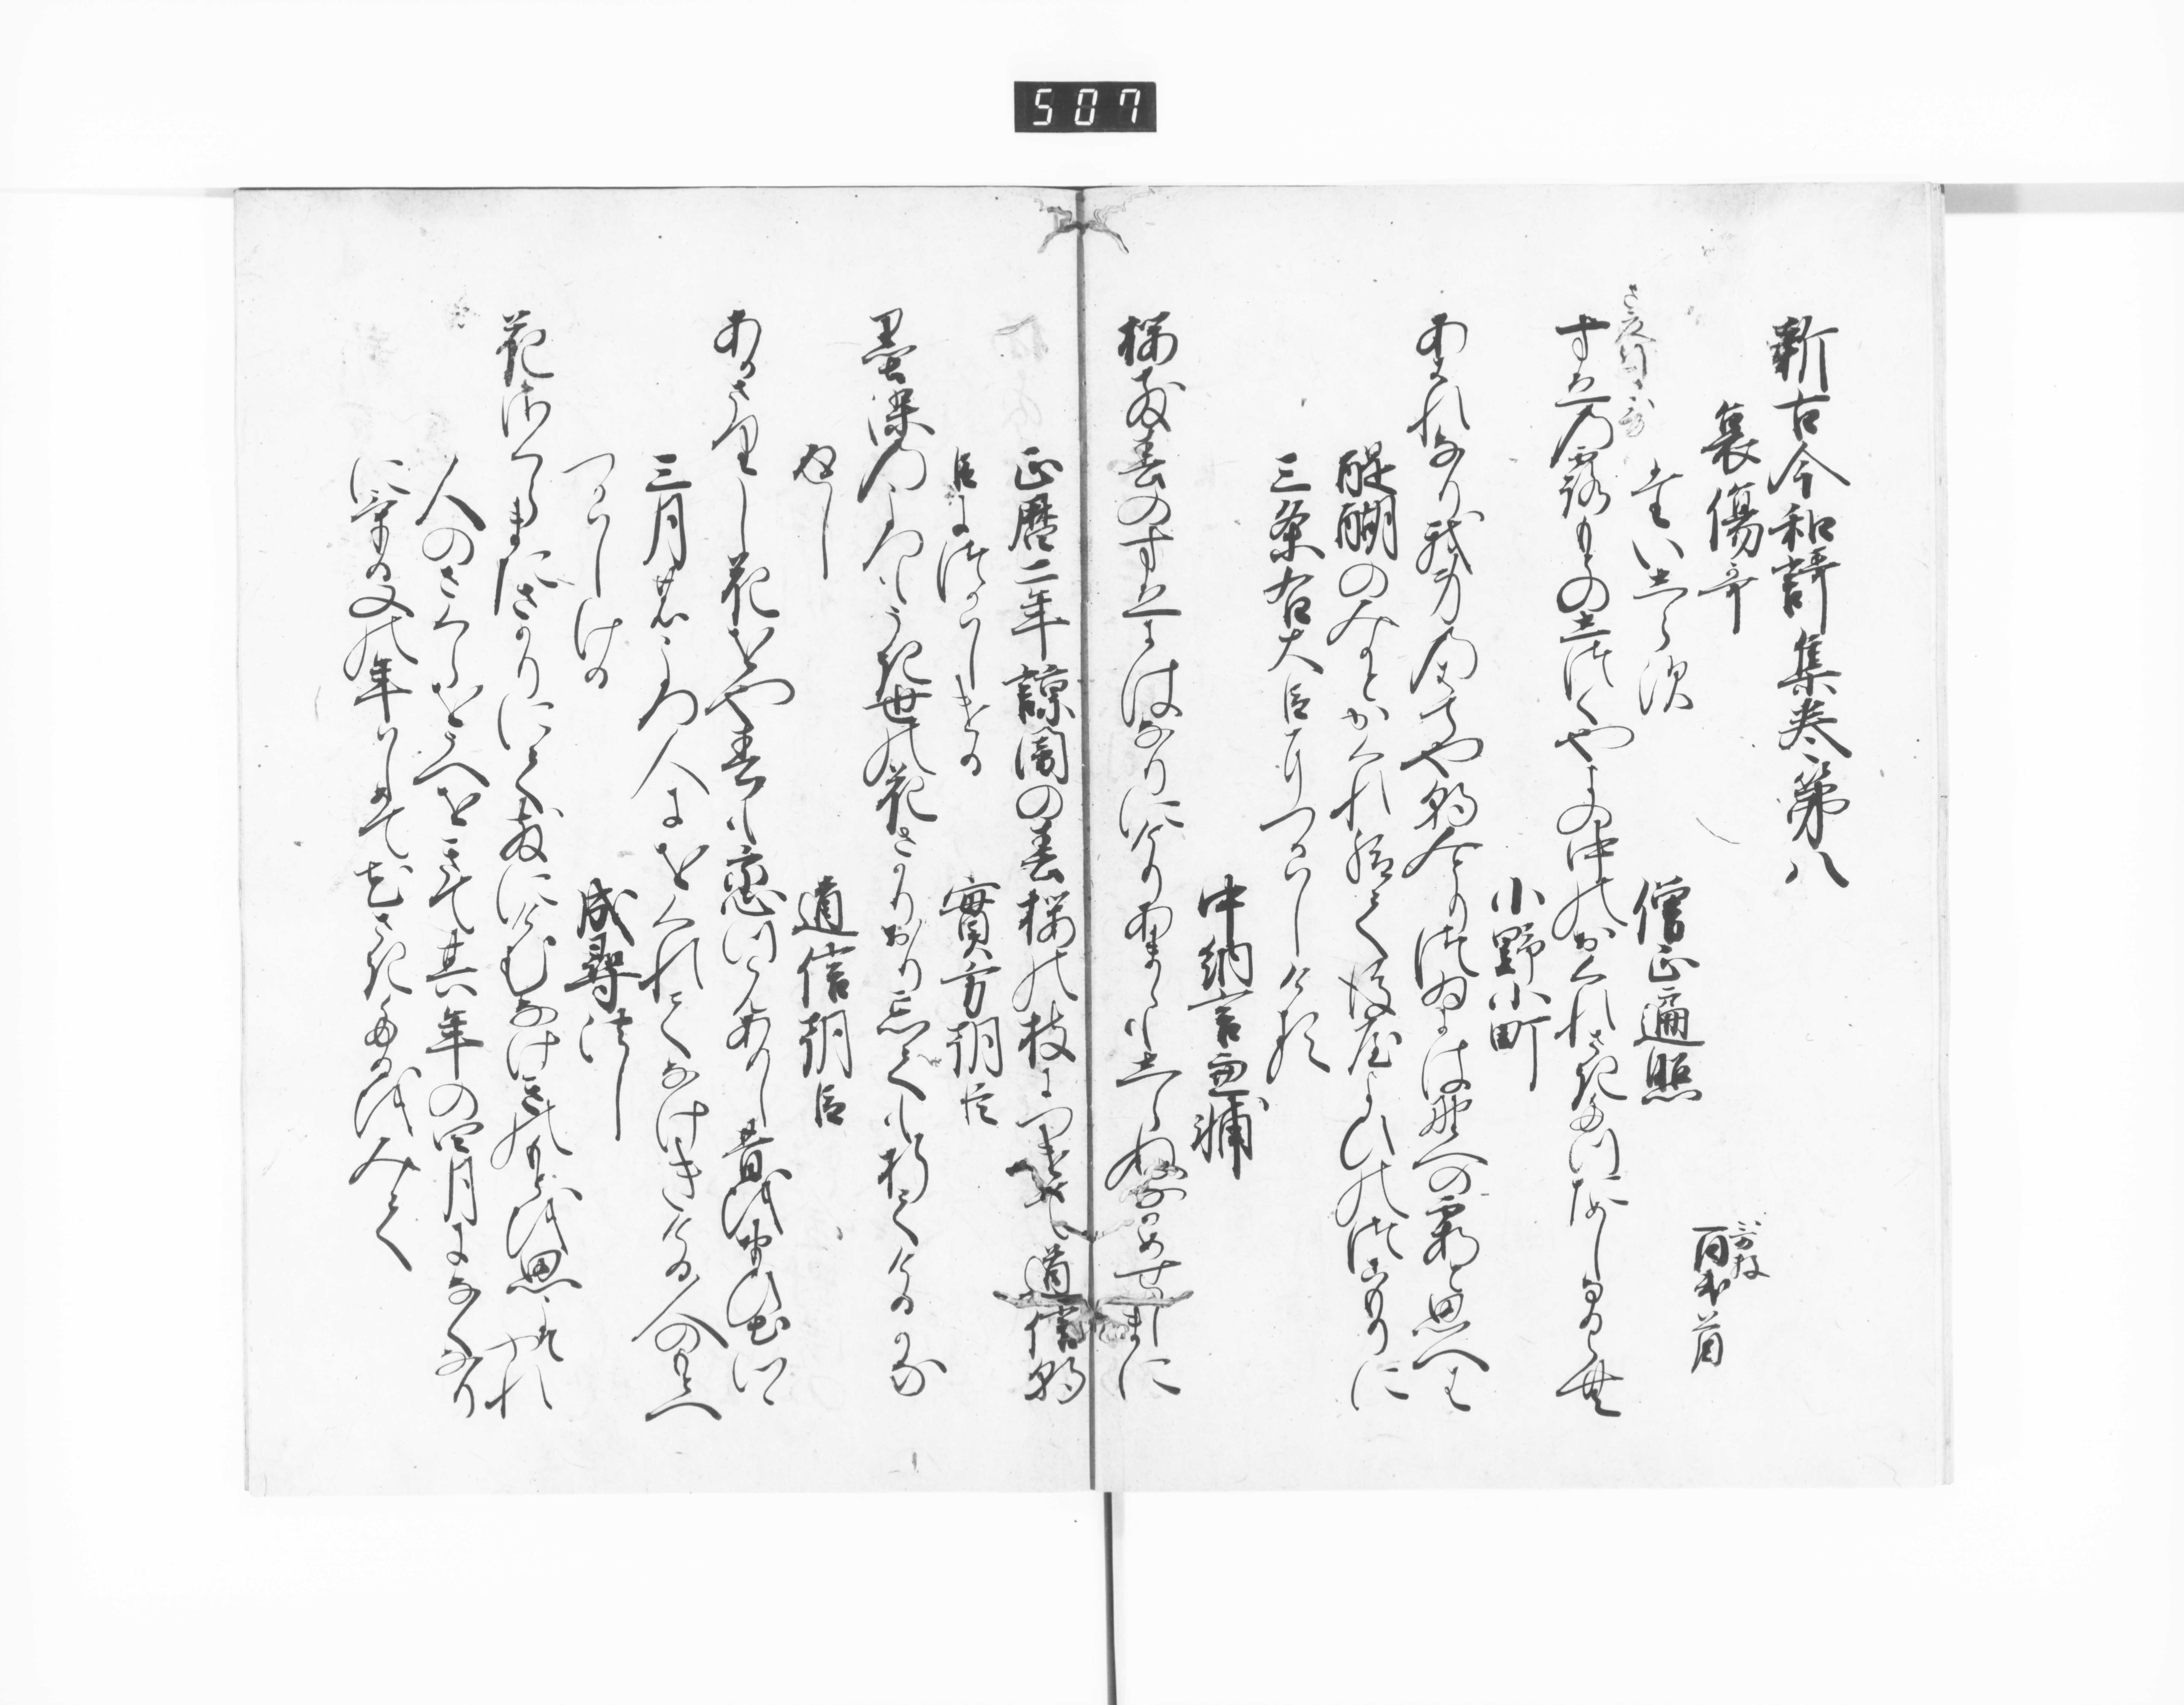 507
新古今和謌集巻第八
哀傷哥
百首
題しらす
僧正遍照
すゑの露もとのしつくや世の中のをくれさきたつためしなるらむ
小野小町
あはれなり我身のはてや朝みとりつゐには野へのかすみと思へは
醍醐のみかとかくれ給て後やよひのつこもりに
三条右大臣につかはしける
中納言兼輔
桜ちる春のすゑにはなりにけりあまゝもしらぬなかめせしまに
正暦二年諒闇の春桜の枝につけて道信朝
臣につかはしける
實方朝臣
墨染のころもうき世の花さかりおり忘ても折てけるかな
返し
道信朝臣
あかさりし花をや春も恋つらんありし昔を思いてつゝ
三月のころ人にをくれてなけきける人のもとへ
つかはしける
成尋法し
花さくらまたさかりにてちりにけむなけきのもとを思こそやれ
人のさくらをうへをきて其年の四月になくなり
にける又の年はしめて花さきたるをみて